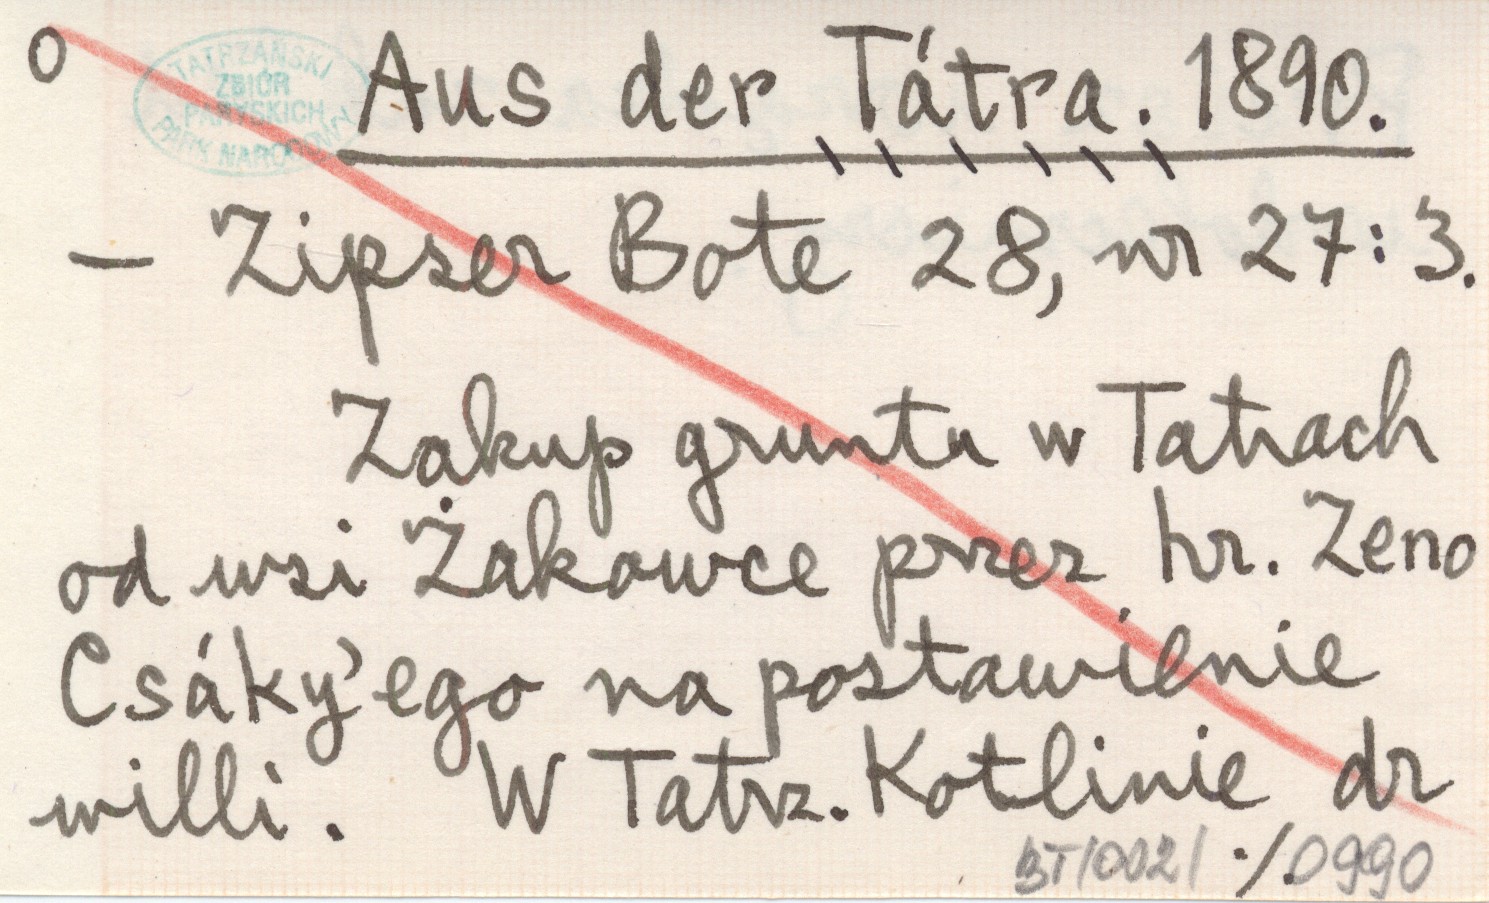 o
TATRZAŃSKI
ZBIÓR
PARYSKICH
PARK NARODOWY
Aus der Tátra. 1890.
– Zipser Bote 28, nr 27: 3.
Zakup gruntu w Tatrach
od wsi Żakowce przez hr. Zeno
Csáky'ego na postawienie
willi. W Tatrz. Kotlinie dr
BT/002/ ./.0990